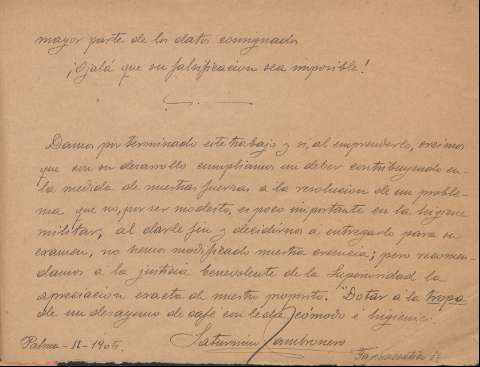 mayor parte de los datos consignados
¡Ojalá que su falsificacion sea imposible!
Damos por terminado este trabajo y si, al emprenderlo, creimos
que con su desarrollo cumpliamos un deber contribuyendo en
la medida de nuestras fuerzas a la resolucion de un proble-
ma que no, por ser modesto, es poco importante en la higiene
militar, al darle fin y decidirnos a entregarlo para su
examen, no hemos modificado nuestra creencia; pero recomen-
damos a la justicia benevolente de la Superioridad la
apreciacion exacta de nuestro proposito. "Dotar a la tropa
de un desayuno de café con leche, cómodo e higienico.
Palma-II-1905.
Saturnino Cambronero
Farmacéutico